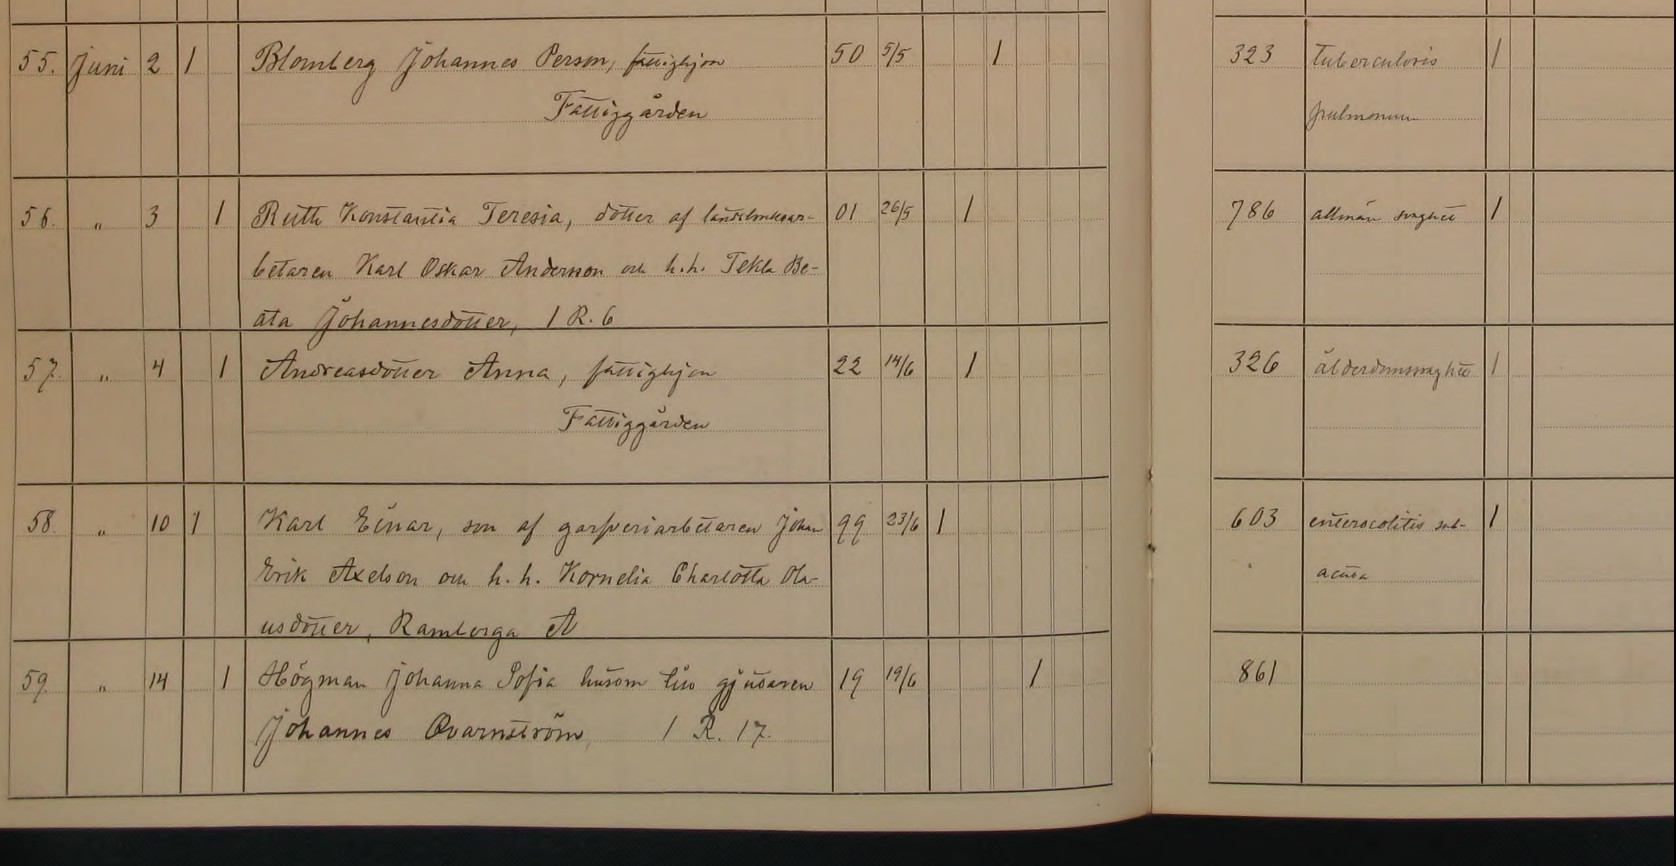 55. Juni 2 1 Blomberg Johannes Person, fattighjon 50 5/5 1 323 tuberculosis 1
Fattiggården pulmonum
56. " 3 1 Ruth Konstantia Teresia, dotter af 01 26/5 1 786 allmän svaghet 1
betaren Karl Oskar Anderson och h.h. Tekla Be-
ata Johannesdotter, 1 R. 6
57. " 4 1 Andreasdotter Anna, fattighjon 22 14/6 1 326 ålderdomssvaghet 1
Fattiggården
58. " 10 1 Karl Einar, son af garfveriarbetaren Johan 99 23/6 1 603 enterocolitis sub- 1
Erik Axelson och h. h. Kornelia Charlotta Ola- acuta
usdotter, Ramberga A
59. " 14 1 Högman Johanna Sofia hustru gjutaren 19 19/6 1 861
Johannes Qvarnström, 1 R. 17.